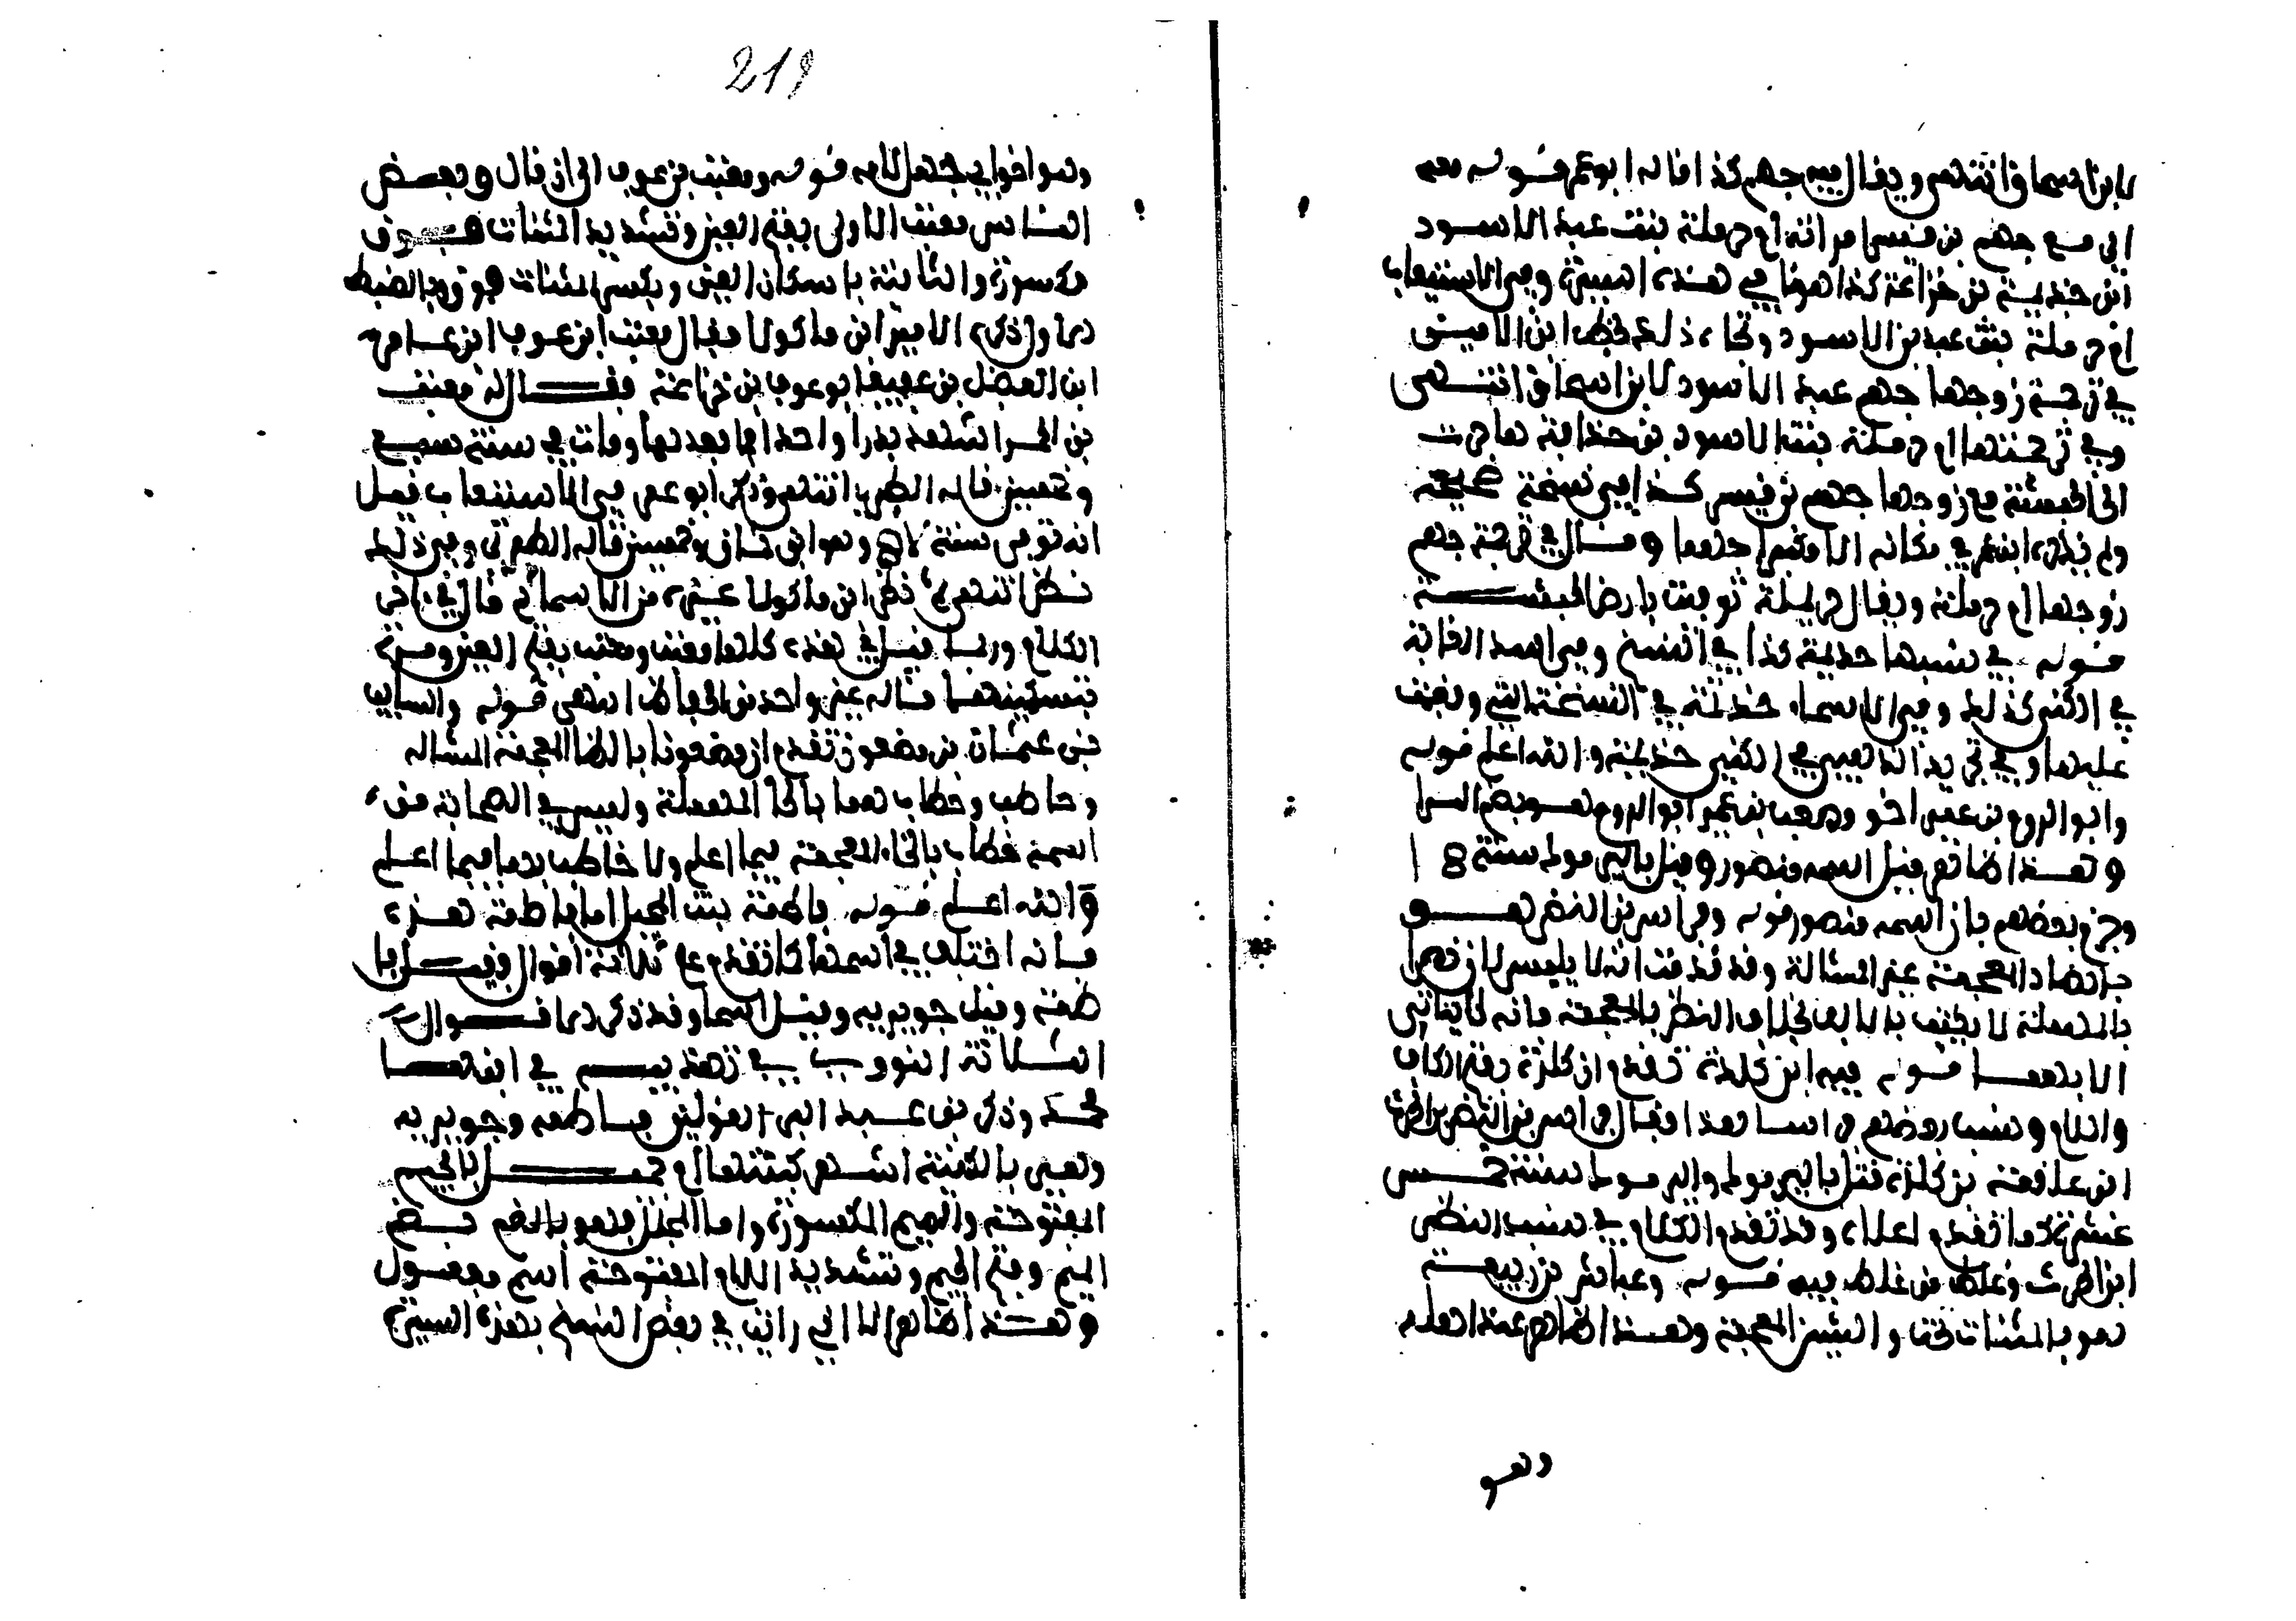 لابن اسحاق انتهى ويقال فيه جهم كذا قاله ابو عمر قوله معه
اي مع جهم بن قيس امراته ام حرملة بنت عبد الاسود
ابن خذيمة بن خزاعة كذا هونا في هذه السيرة وفي الاستيعاب
ام حرملة بنت عبد بن الاسود وتجاه ذلك بخط ابن الامين
في ترجمة زوجها جهم عبد الاسود لابن اسحاق انتهى
وفي ترجمتها ام حرملة بنت الاسود بن خذافة هاجرت
الى الحبشة مع زوجها جهم بن قيس كذا في نسخة صحيحة
ولم يذكره ابو عمر في مكانه الا وكبر احدهما وقال في ترجمة جهم
زوجها ام حرملة ويقال حريملة توفيت بارض الحبشة
قوله في نسبها خذيمة كذا في النسخ وفي اسد الغابة
في الكنى كذلك وفي الاسماء خذيمة في النسخة التي وقفت
عليها وفي تجريد الذهبي في الكنى خذيمة والله اعلم قوله
وابو الروم بن عمير اخو مصعب بن عمير ابو الروم هو بضم الراء
وهذا الظاهر قيل اسمه منصور وقيل باليرموك سنة 8 1
وجزم بعضهم بان اسمه منصور قوله وفراس بن النضر هو
بالضاد المعجمة غير المشالة وقد قدمت انه لا يلبس لان نصرا
بالمهملة لا يكتب بالالف بخلاف النضر بالمعجمة فانه لا ياتي
الا بهما قوله فيه ابن كلدة تقدم ان كلدة بفتح الكاف
واللام ونسب بعضهم فراسا هذا فقال فراس بن النضر بن الحرث
ابن علقمة بن كلدة قتل باليرموك واليرموك سنة خمس
عشرة كما تقدم اعلاه وقد تقدم الكلام في نسب النضر
ابن الحرث وغلط من غلط فيه قوله وعياش بن ربيعة
هو بالمثنات تحت والشين المعجمة وهذا الظاهر عند اهله
وهو
219
وهو اخو ابي جهل لامه قوله ومعتب بن عوف الى ان قال وبعض
الناس معتب الاولى بفتح العين وتشديد المثنات فوق
مكسورة والثانية باسكان العين وبكسر المثنات فوق وبالضبط
ذكره الامير ابن ماكولا فقال معتب ابن عوف ابن عامر
ابن الفضل بن عفيف ابو عوف بن خزاعة فقال له معتب
بن الحمرا شهد بدرا واحدا وما بعدها ومات في سنة سبع
وخمسين قاله الطبري انتهى وذكر ابو عمر في الاستيعاب قيل
انه توفي سنة وهو ابن ثمان وخمسين قاله الطبري وفي ذلك
نظر انتهى ثم ذكر ابن ماكولا غيره من الاسماء ثم قال في اخر
الكلام وربما قيل في هذه كلها معتب ومعتب بفتح العين ومرة
بتسكينها قاله غير واحد من الحفاظ انتهى قوله والسايب
بن عثمان بن مظعون تقدم ان مظعونا بالظا المعجمة المشالة
وحاطب وحطاب هما بالحا المهملة وليس في الصحابة من
اسمه خطاب بالخاء المعجمة فيما اعلم ولا خاطب بها فيما اعلم
والله اعلم قوله فاطمة بنت المجلل اما فاطمة هذه
فانه اختلف في اسمها كما تقدم على ثلاثة اقوال فقيل فا
طمة وقيل جويرية وقيل اسما وقد ذكر الاقوال
الثلاثة النووي في تهذيبه في ابنها
محمد وذكر بن عبد البر القولين فاطمة وجويرية
وهي بالكنية اشهر كنيتها ام جميل بالجيم
المفتوحة والميم المكسورة واما المجلل فهو بالضم بضم
الميم وفتح الجيم وتشديد اللام المفتوحة اسم مفعول
وهذا الظاهر الا اني رايت في بعض النسخ بهذه السيرة